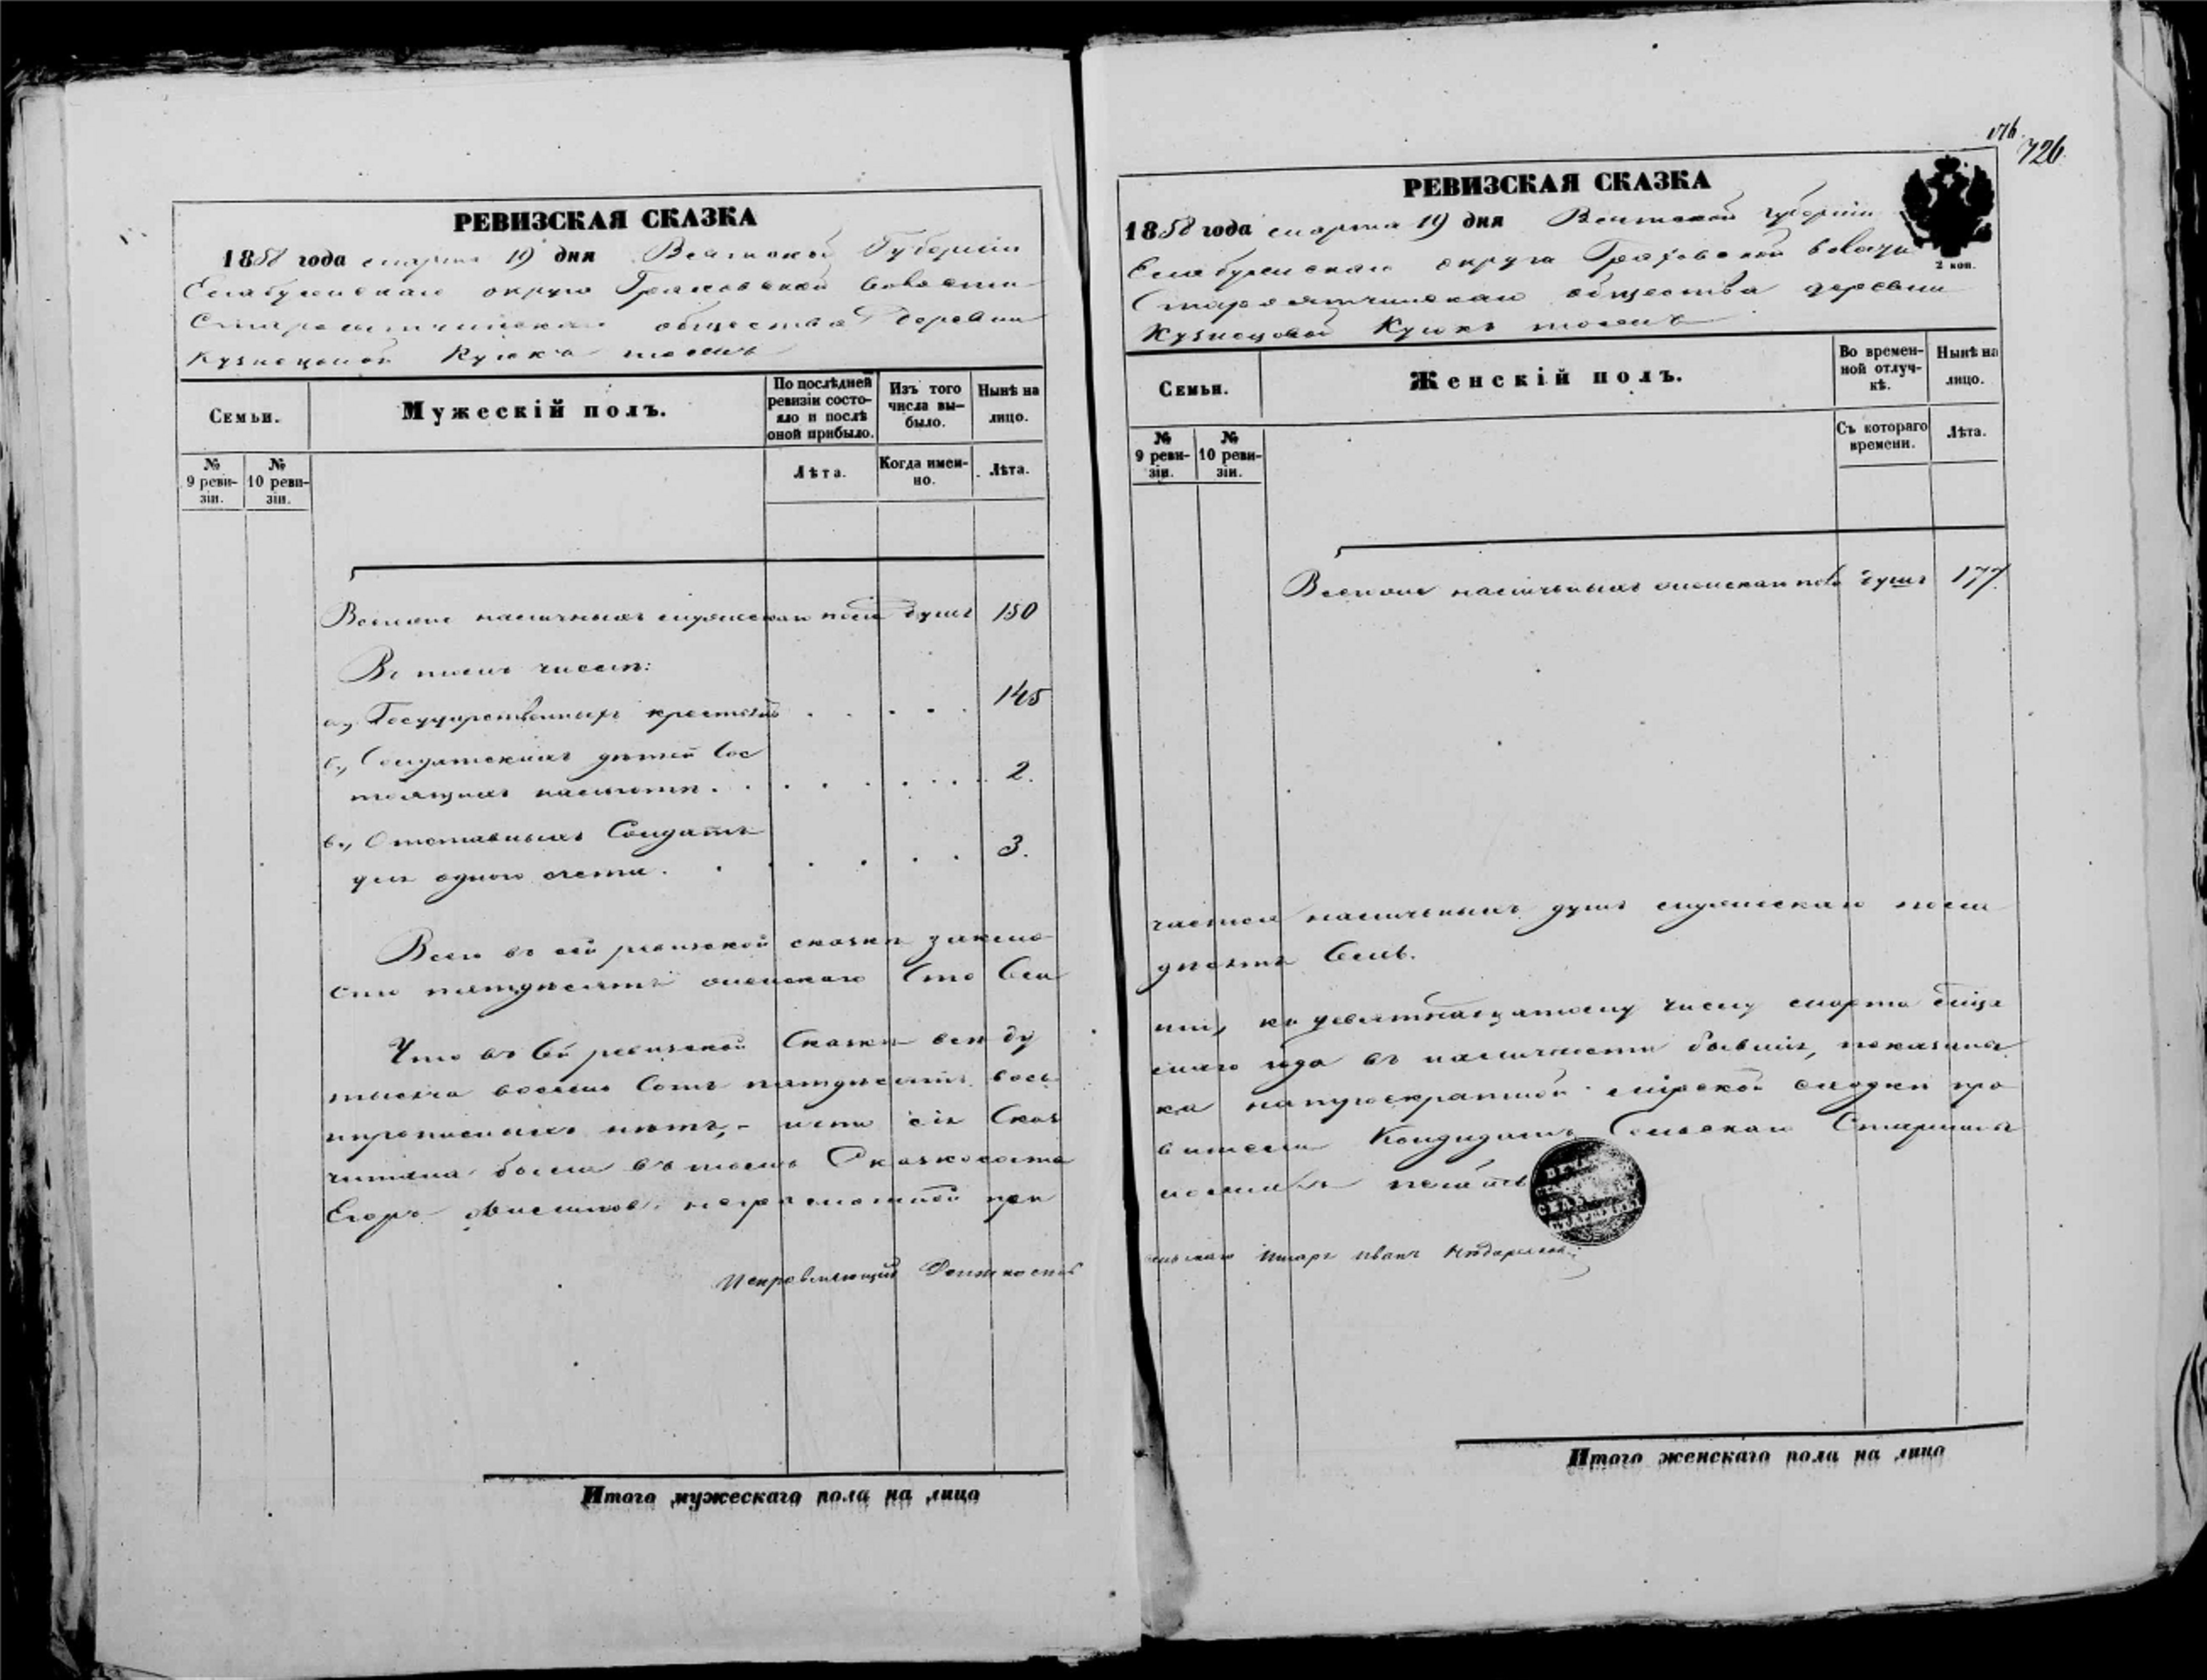 РЕВИЗСКАЯ СКАЗКА
1858 года марта 19 дня Вятской Губерніи
Елабужскаго округа Граховской волости
Староятчинскаго общества деревни
Кузнецовой
Семьи.
Мужескій полъ.
По послѣдней ревизіи состояло и послѣ оной прибыло.
Изъ того числа вы-
было.
Нынѣ на
лицо.
№
9 реви-
зіи.
№
10 реви-
зіи.
Лѣта.
Когда имен-
но.
Лѣта.
Всего наличныхъ мужескаго пола душъ 150
Въ томъ числѣ:
а., Государственныхъ крестьянъ 145
б., Солдатскихъ дѣтей сос
тоящихъ 2.
в., Отставныхъ Солдатъ
для одного счета. 3.
Всего въ сей ревизской сказкѣ заклю
сто пятдесятъ женскаго Сто Сем
Что въ Сей ревизской Сказкѣ всѣ ду
тысяча восемь Сотъ пятдесятъ вось
прописныхъ нѣтъ, сія Сказ
читана была въ томъ Сказкососта
Егоръ неграмотной при
Исправляющій Должность
Итого мужескаго пола на лицо
176.
726.
РЕВИЗСКАЯ СКАЗКА
2 коп.
1858 года марта 19 дня Вятской губерніи
Елабужскаго округа Граховской волости
Староятчинскаго общества деревни
Кузнецовой
Семьи.
Женскій полъ.
Во времен-
ной отлуч-
кѣ.
Нынѣ на
лицо.
№
9 реви-
зіи.
№
10 реви-
зіи.
Съ котораго
времени.
Лѣта.
Всего наличныхъ женскаго пола душъ 177.
чается наличныхъ душъ мужескаго пола
десятъ Семь.
ши, къ девятнадцатому числу марта тыся
маго года въ наличности бывшія, показаны
ка на троекратной мірской сходкѣ про
вителя Кандидатъ Сельскаго Старшины
печать
сельскаго Писаря Иванъ
Итого женскаго пола на лицо